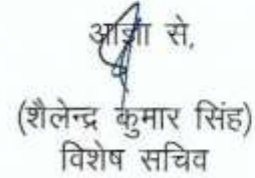 आज्ञा से,
(शैलेन्द्र कुमार सिंह)
विशेष सचिव